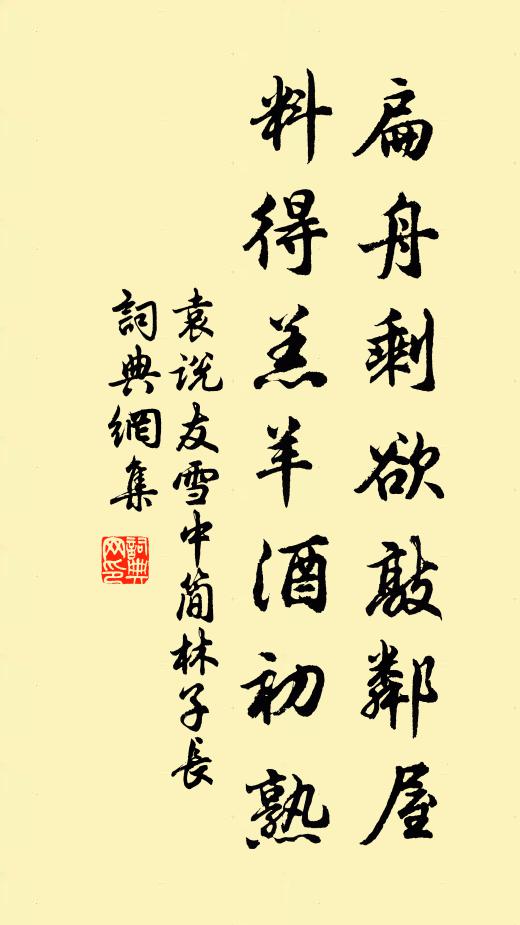 扁舟剩欲敲鄰屋
料得羔羊酒初熟
袁说友雪中简林子長
詞典網集
詞典网印